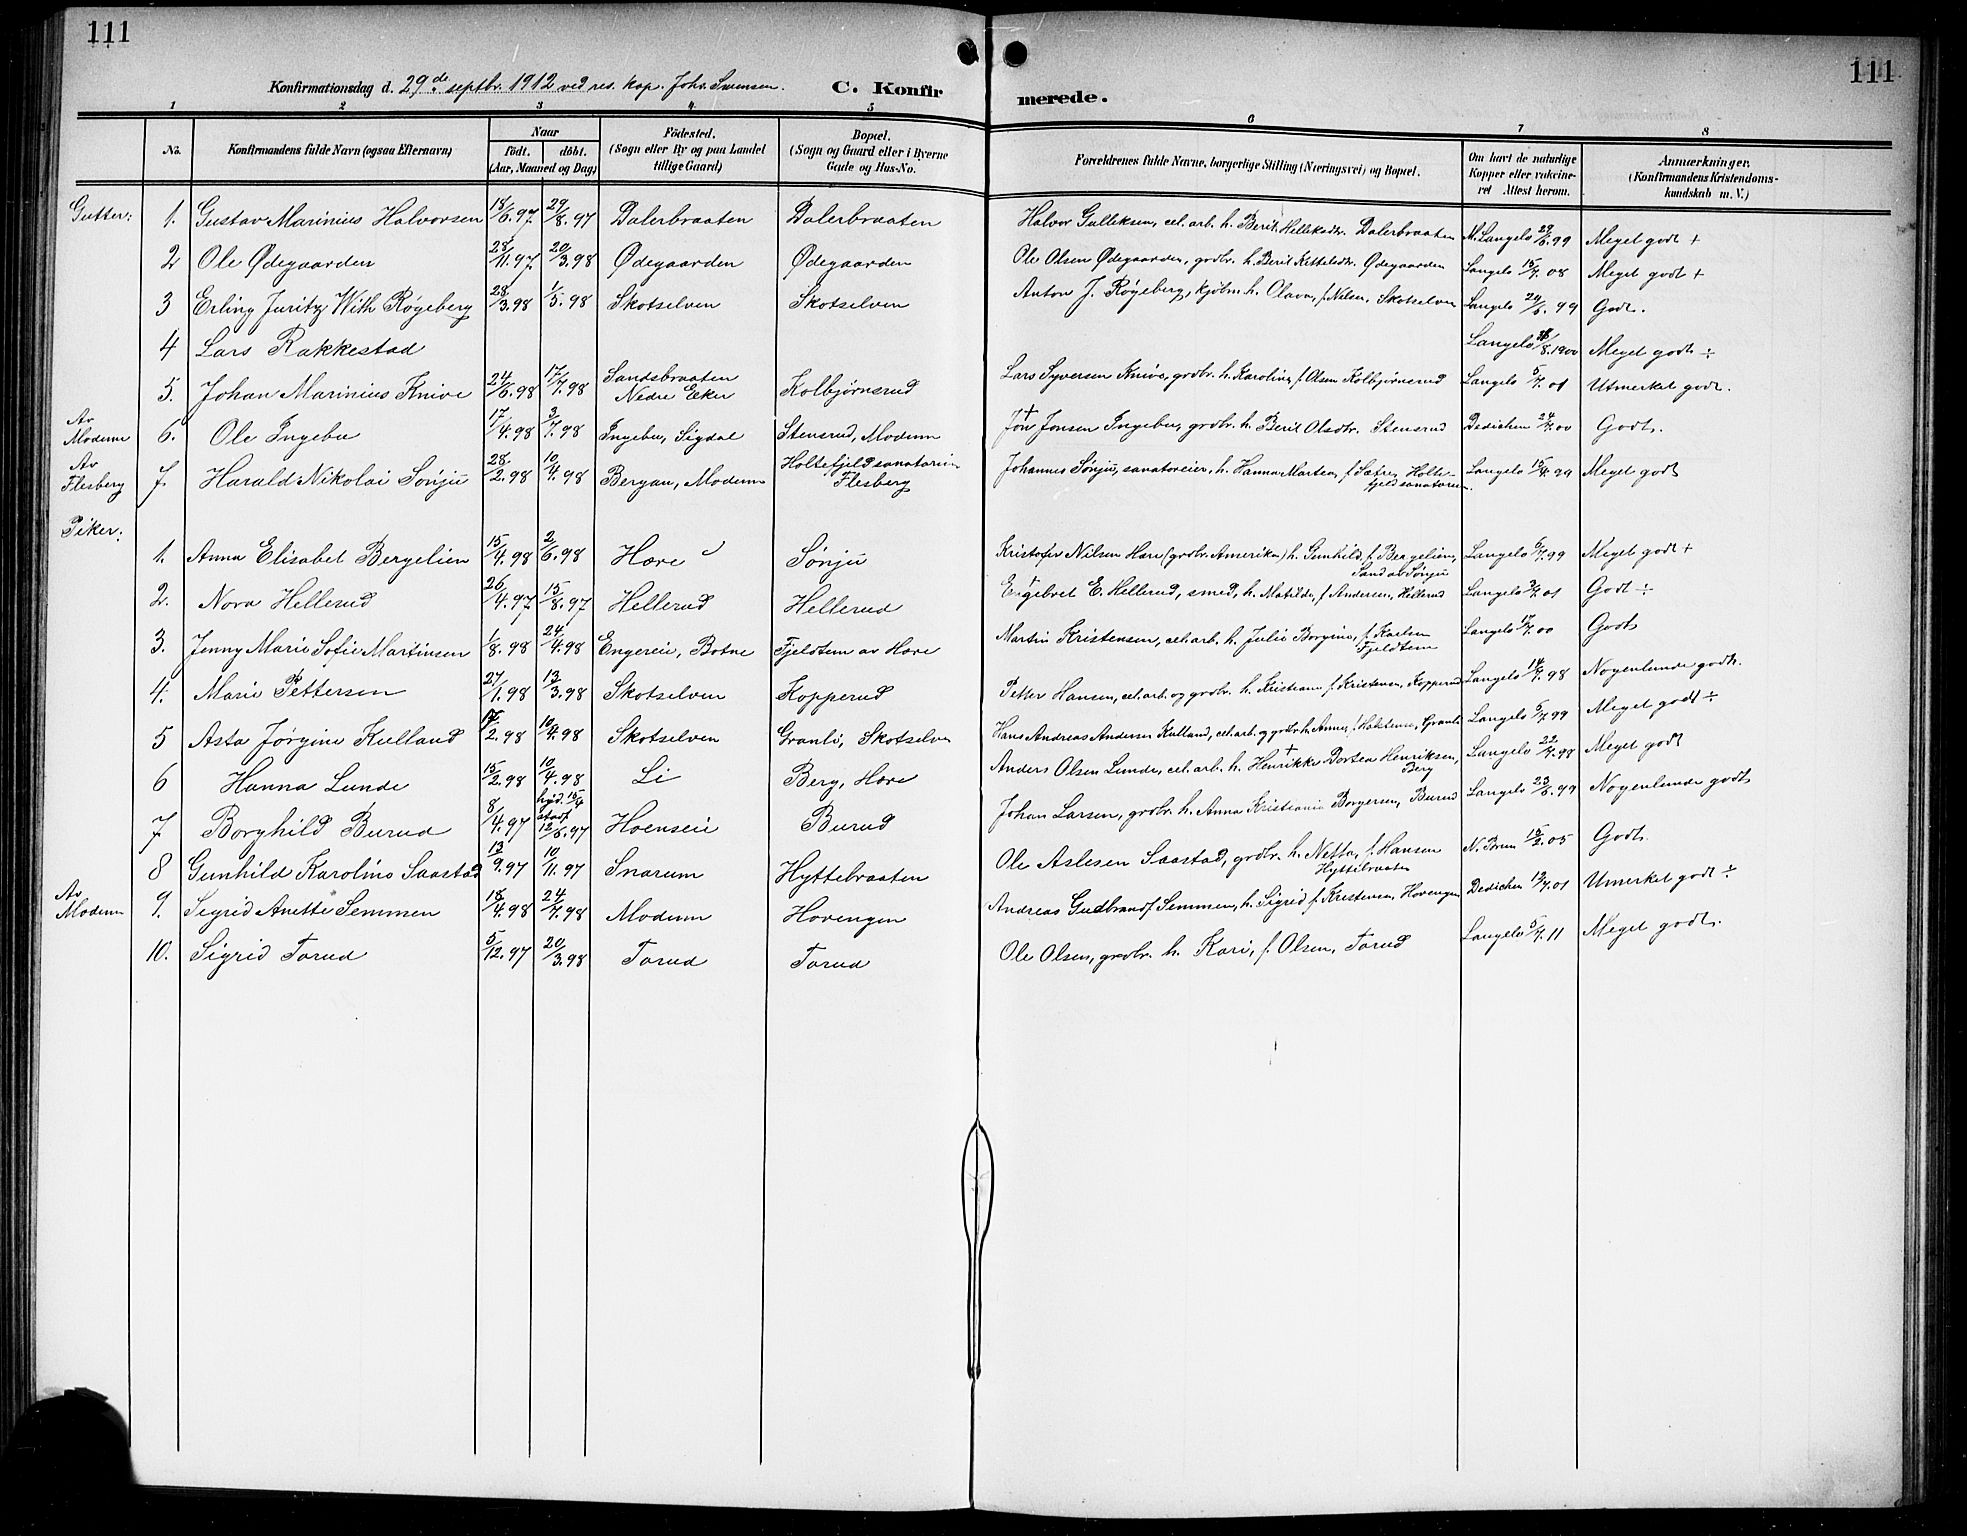 111
111
Konfirmationsdag d. 29de septbr. 1912 ved res. kap. Johs. Svensen.
C. Konfirmerede.
1 2 3 4 5 6 7 8
No. | Konfirmandens fulde Navn (ogsaa Efternavn) | Naar födt. döbt. (Aar, Maaned og Dag) | Födested. (Sogn eller By og paa Landet tillige Gaard) | Bopæl. (Sogn og Gaard eller i Byerne Gade og Hus-No. | Forældrenes fulde Navne, borgerlige Stilling (Næringsvei) og Bopæl. | Om havt de naturlige Kopper eller vakcineret Attest herom. | Anmærkninger. (Konfirmandens Kristendomskundskab m. V.)
Gutter:
1. Gustav Marinius Halvorsen | 18/6.97 | 29/8.97 | Dalerbraaten | Dalerbraaten | Halvor Gulleksen, cel. arb. h. Berit Helleksdtr. Dalerbraaten | M. Langelo 29/6.99 | Meget godt +
2 Ole Ødegaarden | 28/11.97 | 20/3.98 | Ødegaarden | Ødegaarden | Ole Olsen Ødegaarden, grdbr. h. Berit Kittelsdtr. Ødegaarden | Langelo 15/7.08 | Meget godt +
3 Erling Juritz With Røgeberg | 28/3.98 | 1/5.98 | Skotselven | Skotselven | Anton J. Røgeberg, kjøbm. h. Olava, f. Nilsen, Skotselven | Langelo 29/6.99 | Godt.
4 Lars Rakkestad | Langelo /8.1900 | Meget godt ÷
5. Johan Marinius Knive | 24/6.98 | 17/7.98 | Sandsbraaten Nedre Eker | Kolbjørnsrud | Lars Syversen Knive, grdbr. h. Karoline, f. Olsen Kolbjørnsrud | Langelo 5/7.01 | Utmerket godt.
Av Modum
6. Ole Ingebu | 17/4.98 | 3/7.98 | Ingebu, Sigdal | Stensrud, Modum | + Jon Jonsen Ingebu, grdbr. h. Berit Olsdtr. Stensrud | Dedichen 24/7.00 | Godt.
Av Flesberg
7. Harald Nikolai Sønju | 28/2.98 | 10/4.98 | Bergan, Modum | Holtefjeldsanatorium Flesberg | Johannes Sønju, sanatorieier, h. Hanna Martea, f. Sætre, Holtefjeldsanatorium. | Langelo 15/4.99 | Meget godt
Piker:
1. Anna Elisabet Bergelien | 15/4.98 | 2/6.98 | Hære | Sønju | Kristofer Nilsen Hære (grdbr. Amerika) h. Gunhild, f. Bergelien, Sand av Sønju | Langelo 6/7.99 | Meget godt +
2. Nora Hellerud | 26/4.97 | 15/8.97 | Hellerud | Hellerud | Engebret E. Hellerud, smed, h. Matilde, f. Andersen, Hellerud | Langelo 3/7.01 | Godt ÷
3. Jenny Marie Sofie Martinsen | 1/8.98 | 24/4.98 | Engereie, Botne | Fjeldtem av Hære | Martin Kristensen, cel. arb. h. Julie Borgine, f. Karlsen Fjeldtem | Langelo /7.00 | Godt
4. Marie Pettersen | 27/1.98 | 13/3.98 | Skotselven | Kopperud | Petter Hansen, cel. arb. og grdbr. h. Kristiane f. Kristensen, Kopperud | Langelo 14/7.98 | Nogenlunde godt.
5 Asta Jørgine Kulland | 17/2.98 | 10/4.98 | Skotselven | Granli, Skotselven | Hans Andreas Andersen Kulland, cel. arb. og grdbr. h. Anna, f. Halstensen, Granli | Langelo 5/7.99 | Meget godt ÷
6 Hanna Lunde | 15/2.98 | 10/4.98 | Li | Berg, Hære | Anders Olsen Lunde, cel. arb. h. + Henrikke Dortea Henriksen, Berg | Langelo 22/7.98 | Meget godt
7 Borghild Burud | 8/4.97 | hjd. 15/4 stadf. 12/6.97 | Hoenseie | Burud | Johan Larsen, grdbr. h. Anna Kristianie Borgersen, Burud | Langelo 23/6.99 | Nogenlunde godt
8 Gunhild Karoline Saastad | 13/9.97 | 10/11.97 | Snarum | Hyttebraaten | Ole Aslesen Saastad, grdbr. h. Netta, f. Hansen Hyttebraaten | N. Brun 15/2.05 | Godt.
Av Modum
9. Sigrid Anette Semmen | 18/4.98 | 24/7.98 | Modum | Hovengen | Andreas Gudbrandsf. Semmen, h. Sigrid f. Kristensen, Hovengen | Dedichen 19/7.01 | Utmerket godt ÷
10. Sigrid Torud | 5/12.97 | 20/3.98 | Torud | Torud | Ole Olsen, grdbr. h. Kari, f. Olsen, Torud | Langelo 5/7.11 | Meget godt.